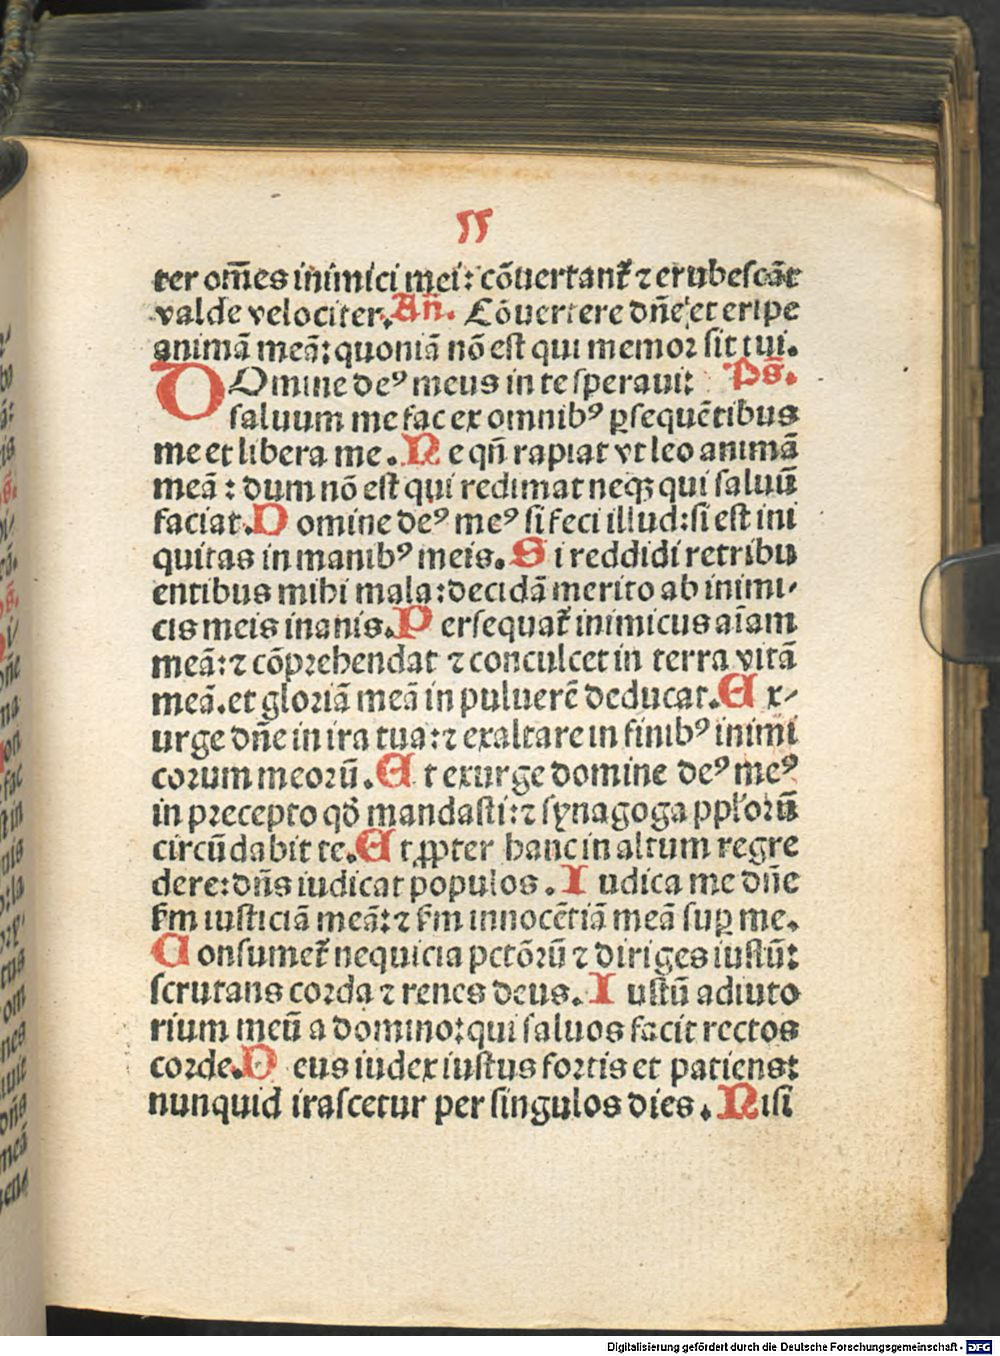 55
ter om̄es inimici mei: cōuertant᷑ ⁊ erubescāt
valde velociter. Añ. Cōuertere dn̄e et eripe
animā meā: quoniā nō est qui memoꝛ sit tui.
DOmine deꝰ meus in te speraui: Ps̄.
saluum me fac ex omnibꝰ ꝑsequētibus
me et libera me. Ne qn̄ rapiat vt leo animā
meā: dum nō est qui redimat neqꝫ qui saluū
faciat. Domine deꝰ meꝰ si feci illud: si est ini
quitas in manibꝰ meis. Si reddidi retribu
entibus mihi mala: decidā merito ab inimi-
cis meis inanis. Persequat᷑ inimicus aīam
meā: ⁊ cōpꝛehendat ⁊ conculcet in terra vitā
meā. et gloꝛiā meā in puluerē deducat. Ex-
urge dn̄e in ira tua: ⁊ exaltare in finibꝰ inimi
coꝛum meoꝛū. Et exurge domine deꝰ meꝰ
in pꝛecepto qd̄ mandasti: ⁊ synagoga pploꝛū
circūdabit te. Et ꝓpter hanc in altum regre
dere: dn̄s iudicat populos. Iudica me dn̄e
km̄ iusticiā meā: ⁊ km̄ innocētiā meā suꝑ me.
Consumet᷑ nequicia pctōꝛū ⁊ diriges iustū:
scrutans coꝛda ⁊ renes deus. Iustū adiuto
rium meū a domino: qui saluos facit rectos
coꝛde. Deus iudex iustus foꝛtis et patiens:
nunquid irascetur per singulos dies. Nisi
Digitalisierung gefördert durch die Deutsche Forschungsgemeinschaft - DFG